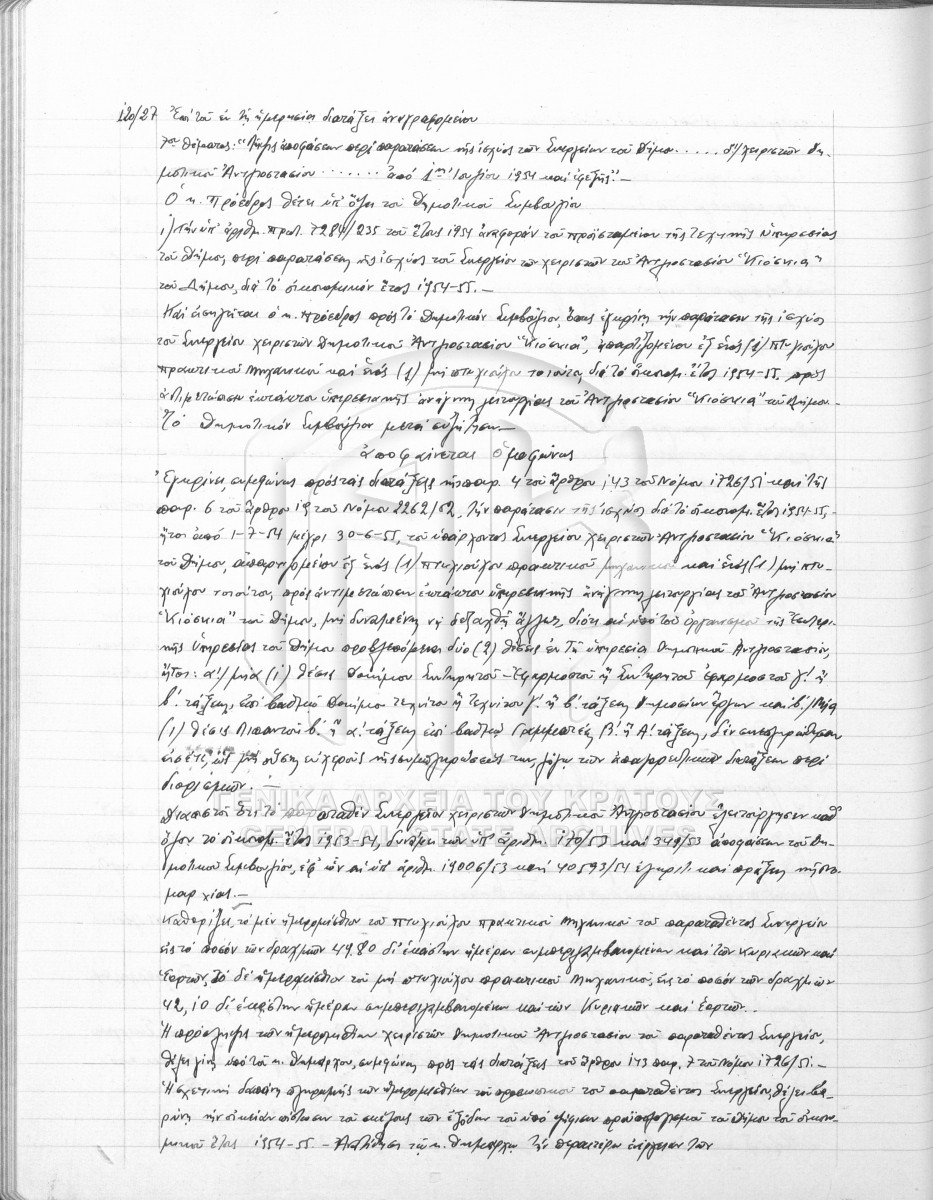 120/27 Ἐπὶ τοῦ ἐν τῇ ἡμερησίᾳ διατάξει ἀναγραφομένου
7ου θέματος: "Λῆψις ἀποφάσεων περὶ παρατάσεων τῆς ἰσχύος τῶν Συνεργείων τοῦ Δήμου ..... δ/ χειριστῶν Δη-
μοτικοῦ Ἀντλιοστασίου ....... ἀπὸ 1ης Ἰουλίου 1954 καὶ ἐφεξῆς".—
Ὁ κ. Πρόεδρος θέτει ὑπ' ὄψει τοῦ Δημοτικοῦ Συμβουλίου
1) Τὴν ὑπ' ἀριθμ. πρωτ. 7284/235 τοῦ ἔτους 1954 ἀναφορὰν τοῦ προϊσταμένου τῆς Τεχνικῆς Ὑπηρεσίας
τοῦ Δήμου, περὶ παρατάσεως τῆς ἰσχύος τοῦ Συνεργείου τῶν χειριστῶν τοῦ Ἀντλιοστασίου "Κιόσκια"
τοῦ Δήμου, διὰ τὸ οἰκονομικὸν ἔτος 1954-55.—
Καὶ εἰσηγεῖται ὁ κ. Πρόεδρος πρὸς τὸ Δημοτικὸν Συμβούλιον, ὅπως ἐγκρίνῃ τὴν παράτασιν τῆς ἰσχύος
τοῦ Συνεργείου χειριστῶν Δημοτικοῦ Ἀντλιοστασίου "Κιόσκια", ἀπαρτιζομένου ἐξ ἑνὸς (1) πτυχιούχου
πρακτικοῦ μηχανικοῦ καὶ ἑνὸς (1) μὴ πτυχιούχου τοιούτου, διὰ τὸ οἰκονομ. ἔτος 1954-55, πρὸς
ἀντιμετώπισιν ἐκτάκτου ὑπηρεσιακῆς ἀνάγκης λειτουργίας τοῦ Ἀντλιοστασίου "Κιόσκια" τοῦ Δήμου.—
Τὸ Δημοτικὸν Συμβούλιον μετὰ συζήτησιν.—
ἀποφαίνεται ὁμοφώνως
Ἐγκρίνει, συμφώνως πρὸς τὰς διατάξεις τῆς παρ. 4 τοῦ ἄρθρου 143 τοῦ Νόμου 1726/51 καὶ τῆς
παρ. 6 τοῦ ἄρθρου 19 τοῦ Νόμου 2262/52, τὴν παράτασιν τῆς ἰσχύος διὰ τὸ οἰκονομ. ἔτος 1954-55,-
ἤτοι ἀπὸ 1-7-54 μέχρι 30-6-55, τοῦ ὑπάρχοντος Συνεργείου χειριστῶν Ἀντλιοστασίου "Κιόσκια"
τοῦ Δήμου, ἀπαρτιζομένου ἐξ ἑνὸς (1) πτυχιούχου πρακτικοῦ μηχανικοῦ καὶ ἑνὸς (1) μὴ πτυ-
χιούχου τοιούτου, πρὸς ἀντιμετώπισιν ἐκτάκτου ὑπηρεσιακῆς ἀνάγκης λειτουργίας τοῦ Ἀντλιοστασίου
"Κιόσκια" τοῦ Δήμου, μὴ δυναμένης νὰ διεξαχθῇ ἄλλως, διότι αἱ ὑπὸ τοῦ ὀργανισμοῦ τῆς Ἐσωτερι-
κῆς Ὑπηρεσίας τοῦ Δήμου προβλεπόμεναι δύο (2) θέσεις ἐν τῇ ὑπηρεσίᾳ Δημοτικοῦ Ἀντλιοστασίου,
ἤτοι: α/ μία (1) θέσις Δοκίμου Συντηρητοῦ - Ἐφαρμοστοῦ ἢ Συντηρητοῦ ἐφαρμοστοῦ Γ' ἢ
β' τάξεως, ἐπὶ βαθμῷ Δοκίμου Τεχνίτου ἢ Τεχνίτου Γ' ἢ β' τάξεως Δημοσίων Ἔργων καὶ β/ Μία
(1) θέσις Λιπαντοῦ β' ἢ α' τάξεως ἐπὶ βαθμῷ Γραμματέως Β' ἢ Α' τάξεως, δὲν συνεπληρώθησαν
εἰσέτι, ὡς μὴ οὔσης εὐχεροῦς τῆς συμπληρώσεώς των, λόγῳ τῶν ἀπαγορευτικῶν διατάξεων περὶ
διορισμῶν.—
Διαπιστοῖ ὅτι τὸ παραταθὲν Συνεργεῖον χειριστῶν Δημοτικοῦ Ἀντλιοστασίου ἐλειτούργησεν καθ'
ὅλον τὸ οἰκονομ. ἔτος 1953-54, δυνάμει τῶν ὑπ' ἀριθμ. 170/53 καὶ 349/53 ἀποφάσεων τοῦ Δη-
μοτικοῦ Συμβουλίου, ἐφ' ὧν αἱ ὑπ' ἀριθμ. 19006/53 καὶ 40593/54 ἐγκριτικαὶ πράξεις τῆς Νο-
μαρχίας.—
Καθορίζει, τὸ μὲν ἡμερομίσθιον τοῦ πτυχιούχου πρακτικοῦ Μηχανικοῦ τοῦ παραταθέντος Συνεργείου
εἰς τὸ ποσὸν τῶν δραχμῶν 49.80 δι' ἑκάστην ἡμέραν συμπεριλαμβανομένων καὶ τῶν Κυριακῶν καὶ
Ἑορτῶν, τὸ δὲ ἡμερομίσθιον τοῦ μὴ πτυχιούχου πρακτικοῦ Μηχανικοῦ, εἰς τὸ ποσὸν τῶν δραχμῶν
42,10 δι' ἑκάστην ἡμέραν συμπεριλαμβανομένων καὶ τῶν Κυριακῶν καὶ Ἑορτῶν..
Ἡ πρόσληψις τῶν ἡμερομισθίων χειριστῶν Δημοτικοῦ Ἀντλιοστασίου τοῦ παραταθέντος Συνεργείου,
θέλει γίνῃ ὑπὸ τοῦ κ. Δημάρχου, συμφώνως πρὸς τὰς διατάξεις τοῦ ἄρθρου 143 παρ. 7 τοῦ Νόμου 1726/51.—
Ἡ σχετικὴ δαπάνη πληρωμῆς τῶν ἡμερομισθίων τοῦ προσωπικοῦ τοῦ παραταθέντος Συνεργείου, θέλει βα-
ρύνῃ τὴν οἰκείαν πίστωσιν τοῦ σκέλους τῶν ἐξόδων τοῦ ὑπὸ ψήφισιν προϋπολογισμοῦ τοῦ Δήμου τοῦ οἰκονο-
μικοῦ ἔτους 1954-55.— Ἀνατίθησι τῷ κ. Δημάρχῳ τὴν περαιτέρω ἐνέργειαν τῶν
ΓΕΝΙΚΑ ΑΡΧΕΙΑ ΤΟΥ ΚΡΑΤΟΥΣ
GENERAL STATE ARCHIVES